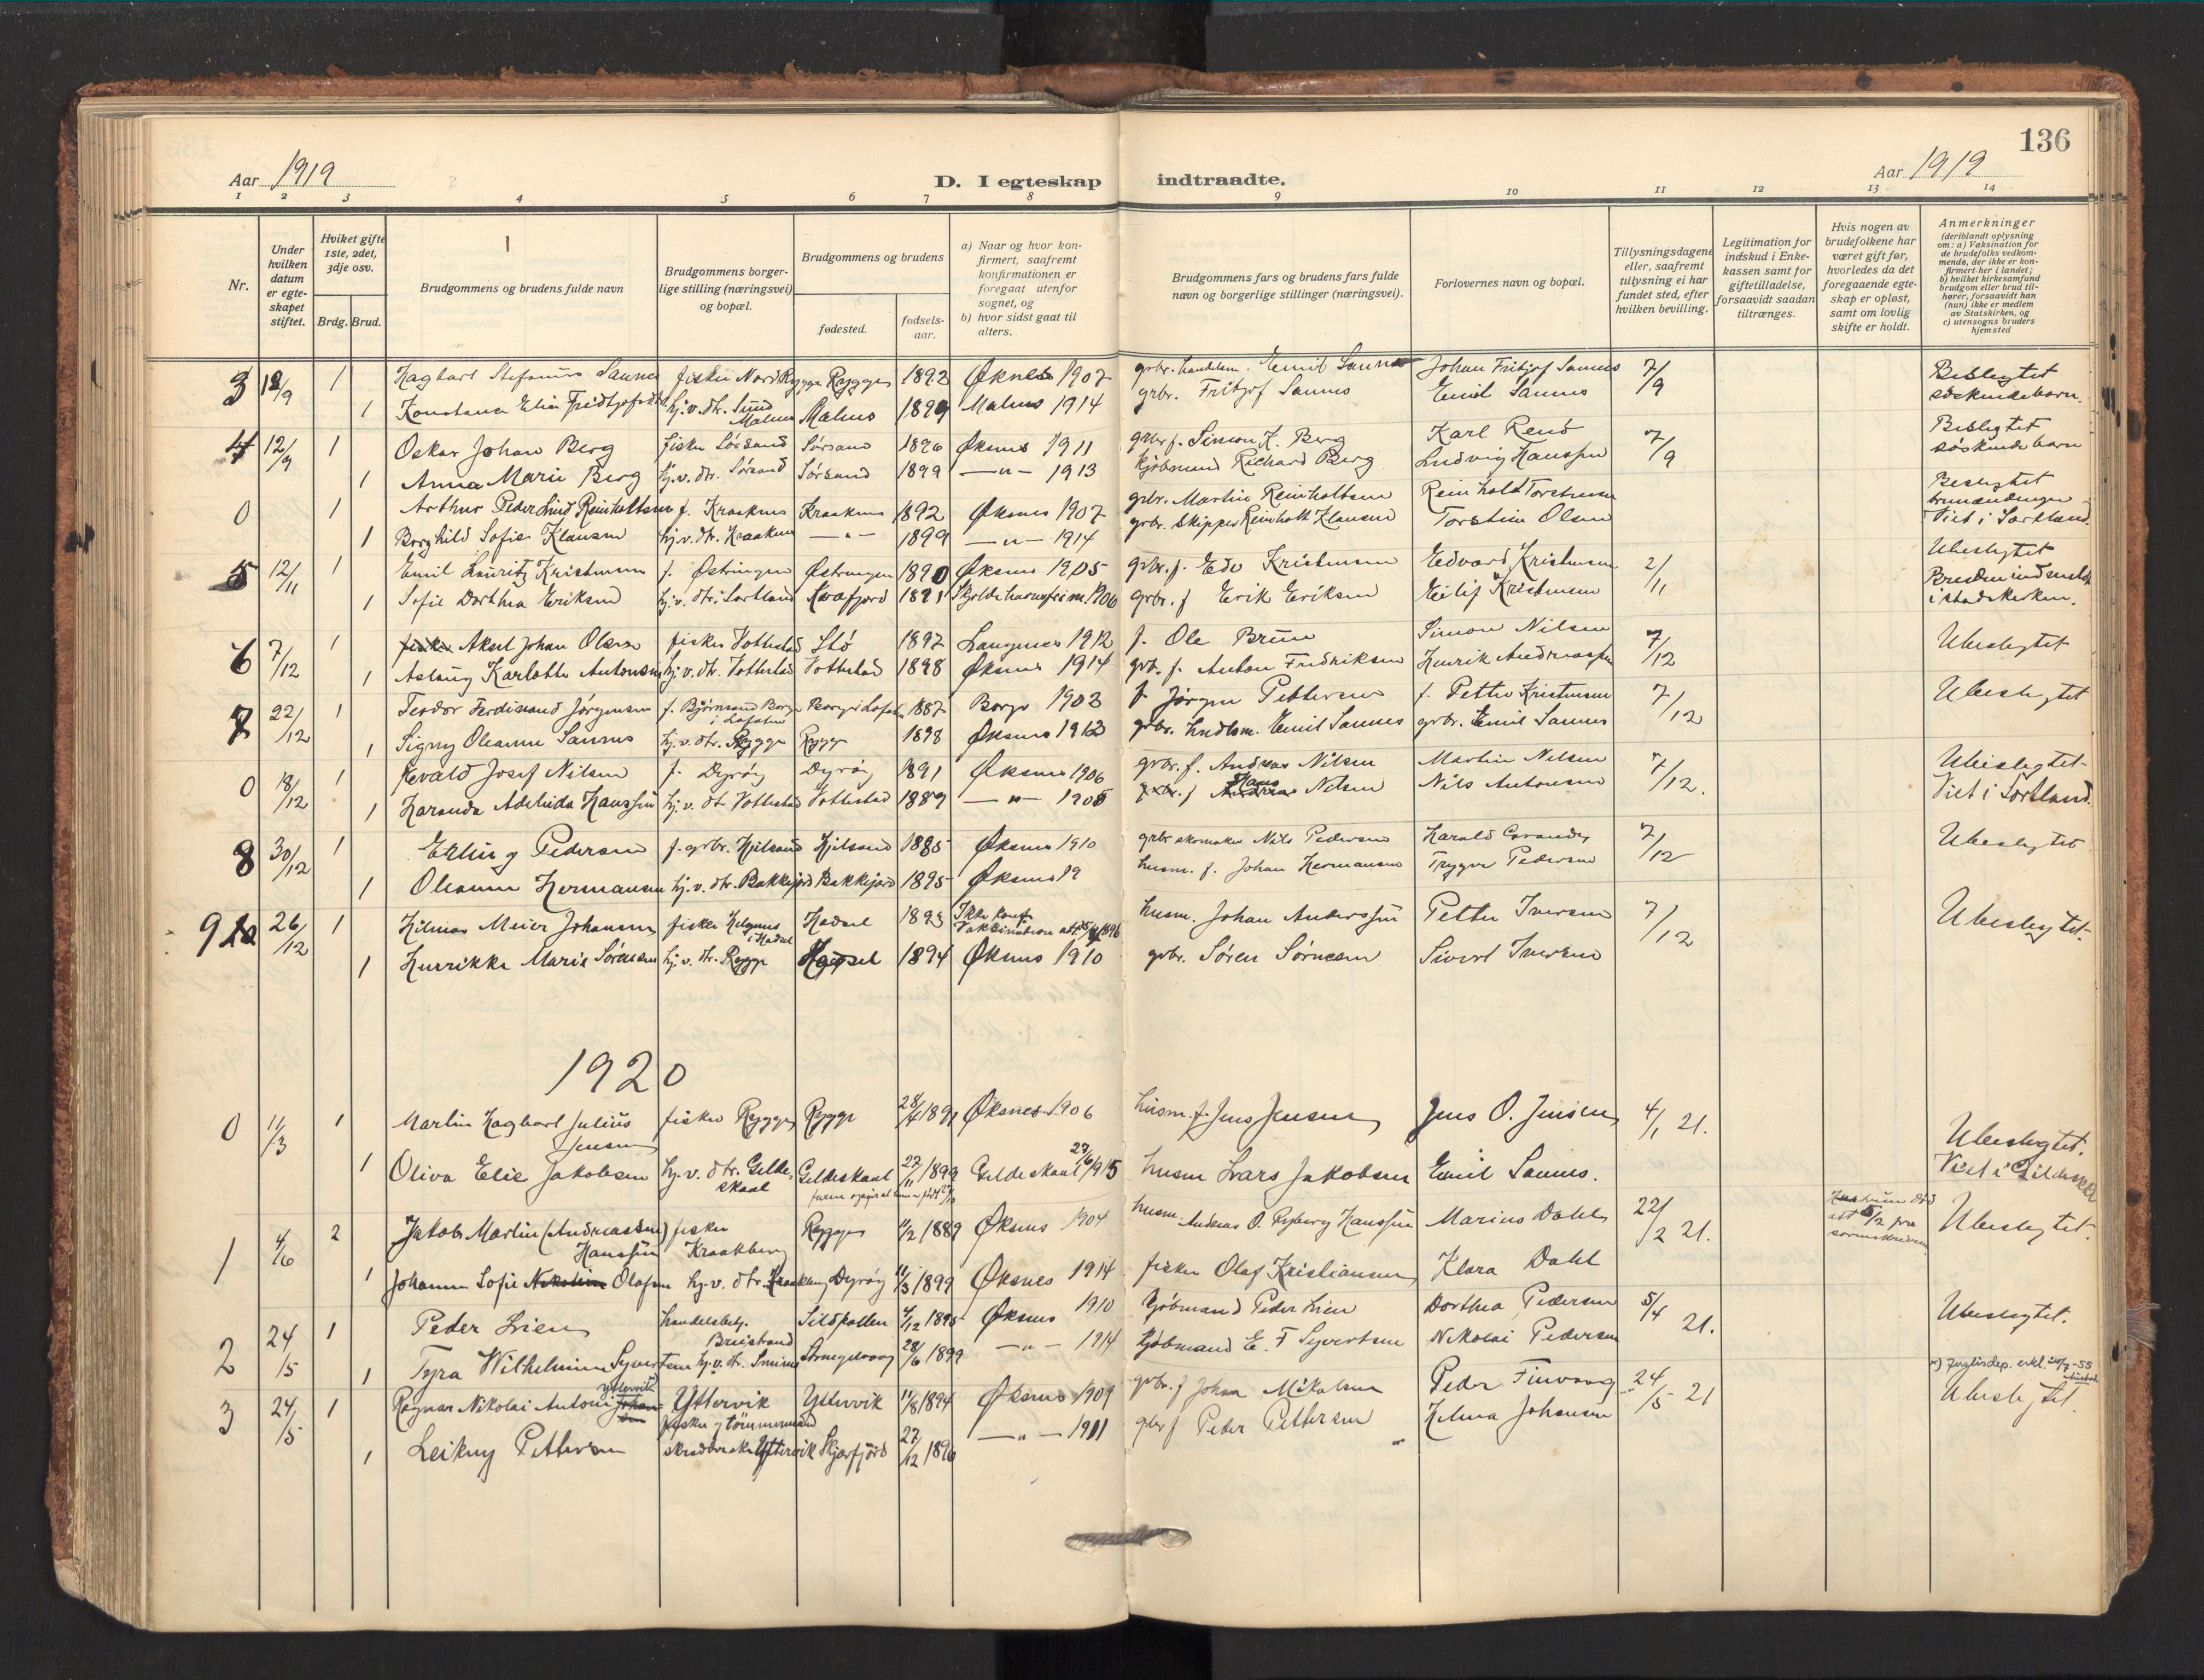 136
Aar 1919
D. I egteskap indtraadte.
Aar 1919
1 2 3 4 5 6 7 8 9 10 11 12 13 14
Nr.
Under hvilken datum er egteskapet stiftet.
Hviket gifte 1ste, 2det, 3dje osv.
Brdg. Brud.
Brudgommens og brudens fulde navn
Brudgommens borgerlige stilling (næringsvei) og bopæl.
Brudgommens og brudens
fødested.
fødselsaar.
a) Naar og hvor konfirmert, saafremt konfirmationen er foregaat utenfor sognet, og
b) hvor sidst gaat til alters.
Brudgommens fars og brudens fars fulde navn og borgerlige stillinger (næringsvei).
Forlovernes navn og bopæl.
Tillysningsdagene eller, saafremt tillysning ei har fundet sted, efter hvilken bevilling.
Legitimation for indskud i Enkekassen samt for giftetilladelse, forsaavidt saadan tiltrænges.
Hvis nogen av brudefolkene har været gift før, hvorledes da det foregaaende egteskap er opløst, samt om lovlig skifte er holdt.
Anmerkninger
(deriblandt oplysning om: a) Vaksination for de brudefolks vedkommende, der ikke er konfirmert her i landet; b) hvilket kirkesamfund brudgom eller brud tilhører, forsaavidt han (hun) ikke er medlem av Statskirken, og c) utensogns bruders hjemsted
3 12/9 1 Hagbart Stefanus Sannes fisker Nord Rygge Rygge 1892 Øknes 1907 grbr. handelsm. Emil Sannes Johan Fritjof Sannes 7/9 Beslegtet
1 Konstanse Elin Fridtjofsdtr hj.v. dtr. Sund Malnes Malnes 1899 Malnes 1914 grbr. Fritjof Sannes Emil Sannes søskendebarn.
4 12/9 1 Oskar Johan Berg fisker Sørsand Sørsand 1896 Øksnes 1911 grbr f. Simon K. Berg Karl Renø 7/9 Beslegtet
1 Anna Marie Berg hj.v. dtr. Sørsand Sørsand 1899 —"— 1913 kjøbmand Richard Berg Ludvig Hanssen søskendebarn
0 1 Arthur Peder Lind Reinholtsen f. Kraaknes Kraaknes 1892 Øksnes 1907 grbr. Martin Reinholtsen Reinholdt Torstensen Beslegtet
1 Borghild Sofie Klausen hj.v. dtr. Kraaknes —"— 1899 —"— 1914 grbr. skipper Reinholt Klausen Torstein Olsen Viet i Sortland.
5 12/11 1 Emil Lauritz Kristensen f. Østringen Østringen 1890 Øksnes 1905 grbr. f. Edv Kristensen Edvard Kristensen 2/11 Ubeslegtet
1 Sofie Dorthea Eriksen hj.v. dtr. i Sortland 1891 1906 grbr. f Erik Eriksen Eilif Kristensen Bruden indmeldt i statskirken.
6 7/12 1 Aksel Johan Olsen fisker Vottestad Stø 1897 Langenes 1912 f. Ole Bruun Simon Nilsen 7/12 Ubeslegtet
1 Aslaug Karlotte Antonsen hj.v. dtr. Vottestad Vottestad 1898 Øksnes 1914 grb. f. Anton Fredriksen Henrik Andreassen
7 22/12 1 Teodor Ferdinand Jørgensen f. Bjørnsand Borge i Lofoten Borge i Lofoten 1887 Borge 1902 f. Jørgen Pettersen f. Petter Kristensen 7/12 Ubeslegtet
1 Signy Oleanne Sannes hj.v. dtr. Rygge Rygge 1898 Øksnes 1913 grbr. hndlsm. Emil Sannes grbr. Emil Sannes
0 18/12 1 Hevald Josef Nilsen f. Dyrøy Dyrøy 1891 Øksnes 1906 grbr. f. Andreas Nilsen Martin Nilsen 7/12. Ubeslegtet
1 Haranda Adelinda Hanssen hj.v. dt Vottestad Vottestad 1889 —"— 1905 grbr. f Hans Nilsen Nils Antonsen Viet i Sortland.
8 30/12 1 Erling Pedersen f. grbr. Hjilsand Hjilsand 1885 Øksnes 1910 grbr skomaker Nils Pedersen Harald 7/12 Ubeslegtet
1 Oleanne Hermansen hj.v. dtr. Bakkejord Bakkejord 1895 Øksnes 19 husm. f. Johan Hermansen Trygve Pedersen
9 26/12 1 Hilmar Meier Johansen fisker i Hadsel Hadsel 1893 Ikke konf. Vaksination att. 1896 husm. Johan Anderssen Petter Iversen 7/12 Ubeslegtet.
1 Henrikke Marie Sørensen hj.v. dtr. Rygge Hadsel 1894 Øksnes 1910 grbr. Søren Sørnesen Sivert Iversen
1920
0 11/3 1 Martin Hagbart Julius Jensen fisker Rygge Rygge 28/4 1891 Øksnes 1906 husm. f. Jens Jensen Jens O. Jensen 4/1 21. Ubeslegtet.
1 Oliva Elie Jakobsen hj.v. dtr. Gildeskaal Geldeskaal 27/11 1899 Geldeskaal 27/6 1915 husm Lars Jakobsen Emil Sannes. Viet i Gildeskaal
1 4/6 2 Jakob Martin (Andreassen) Hanssen fisker Kraakberg Rygge 11/2 1889 Øksnes 1904 husm. Andreas O. Ryberg Hanssen Marius Dahl 22/2 21. Hustruen død att 5/2 fra sorenskriveren Ubeslegtet.
1 Johanne Sofie Olafsen hj.v. dtr. Kraakberg Dyrøy 11/3 1899 Øksnes 1914 fisker Olaf Kristiansen Klara Dahl
2 24/5 1 Peder Lien handelsbetj. Breistrand Sildpollen 4/12 1895 Øksnes 1910 Kjøbmand Peder Lien Dorthea Pedersen 5/4 21. Ubeslegtet.
1 Tyra Wilhelmine Syvertsen hj.v. dtr. Smines Strengelvaag 28/6 1899 —"— 1914 Kjøbmand E. F Syvertsen Nikolai Pedersen
3 24/5 1 Ragnar Nikolai Antoni Yttervik Johansen Yttervik fisker og tømmermand Yttervik 11/8 1894 Øksnes 1909 grbr. f Johan Mikalsen Peder Finvaag 24/5 21 x) Justisdep. erkl. 24/9-55 Ubeslegtet.
1 Leikny Pettersen Yttervik Skjærfjord 27/12 1896 —"— 1911 grbr f Peter Pettersen Helma Johansen